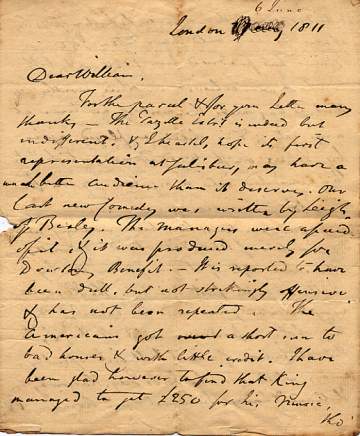 6 June
London 1811
Dear William,
For the parcel & for your Letter many
thanks — The is indeed but
indifferent. & I heartily hope its first
representation at Salisbury, may have a
much better audience than it deserves. Our
last new Comedy was written by Leigh
of Bexley. The managers were afraid
of it & it was produced merely for
Benefit — It is reported to have
been dull, but not strikingly offensive
& has not been repeated. The
Americans got a short run to
bad houses & with little credit. I have
been glad however to find that King
managed to get £250 for his Music,
tho'